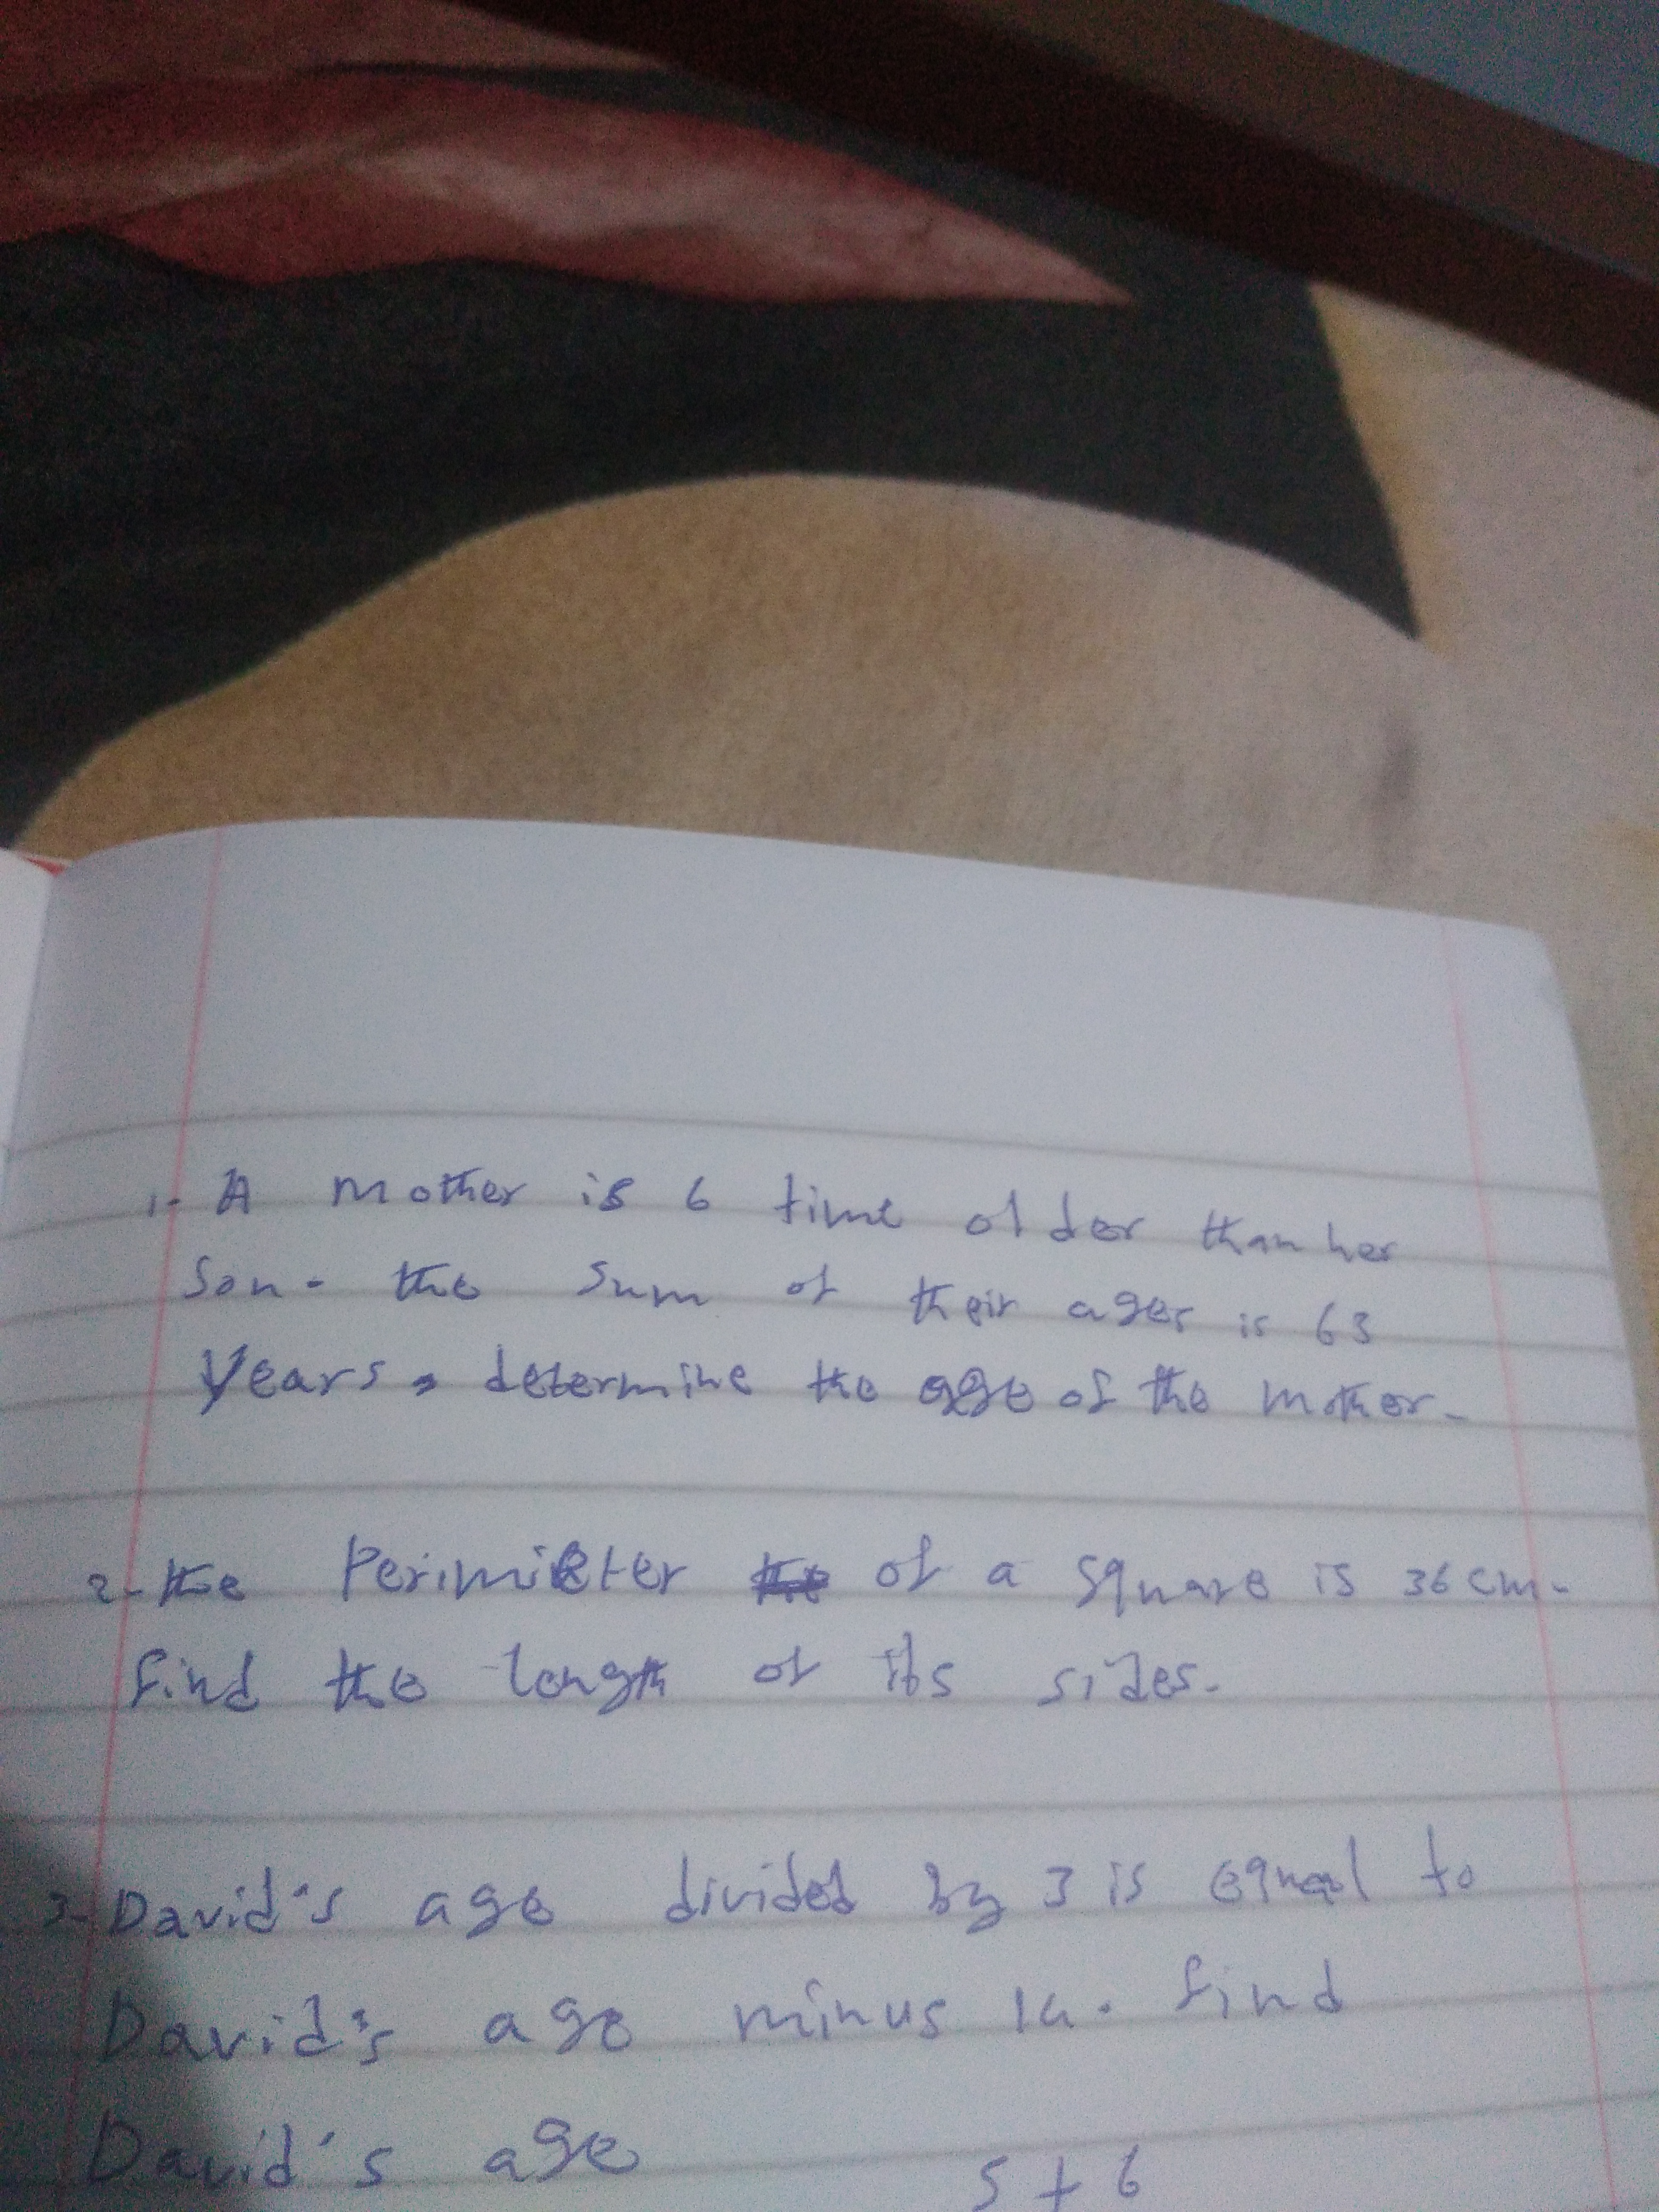 1- A mother is 6 time older than her
Son. the sum of their ages is 63
Years, determine the age of the mother.
2- the Perimeter of a square is 36 cm.
find the length of its sides.
3- David's age divided by 3 is equal to
David's age minus 14. find
David's age
5 + 6